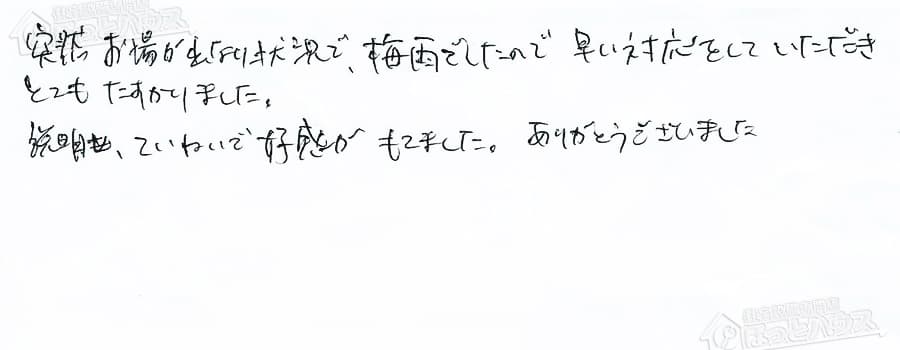 突然 お湯が出ない状況で、梅雨でしたので 早い対応をしていただき
とても たすかりました。
説明も、ていねいで 好感が もてました。 ありがとうございました
ほっとハウス